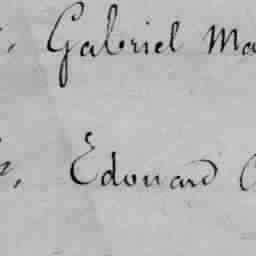 Gabriel Ma
Edouard